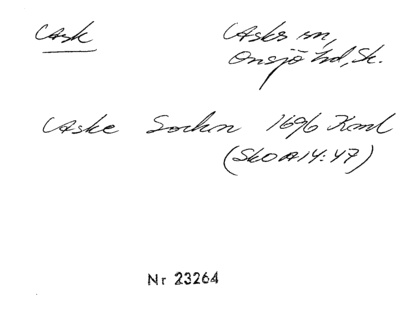 Ask Asks sn,
Onsjö hd, Sk.
Aske Sockn 1696 Kml
(Sk0A14:47)
Nr 23264